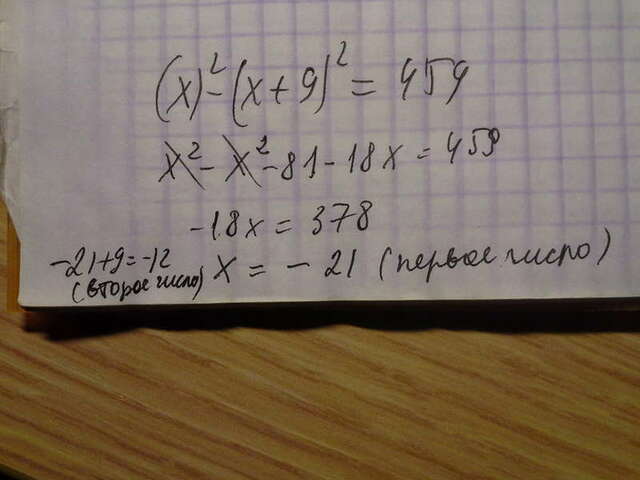 (x)² - (x + 9)² = 459
x² - x² - 81 - 18x = 459
-18x = 378
-21+9=-12
(второе число)
x = - 21 (первое число)